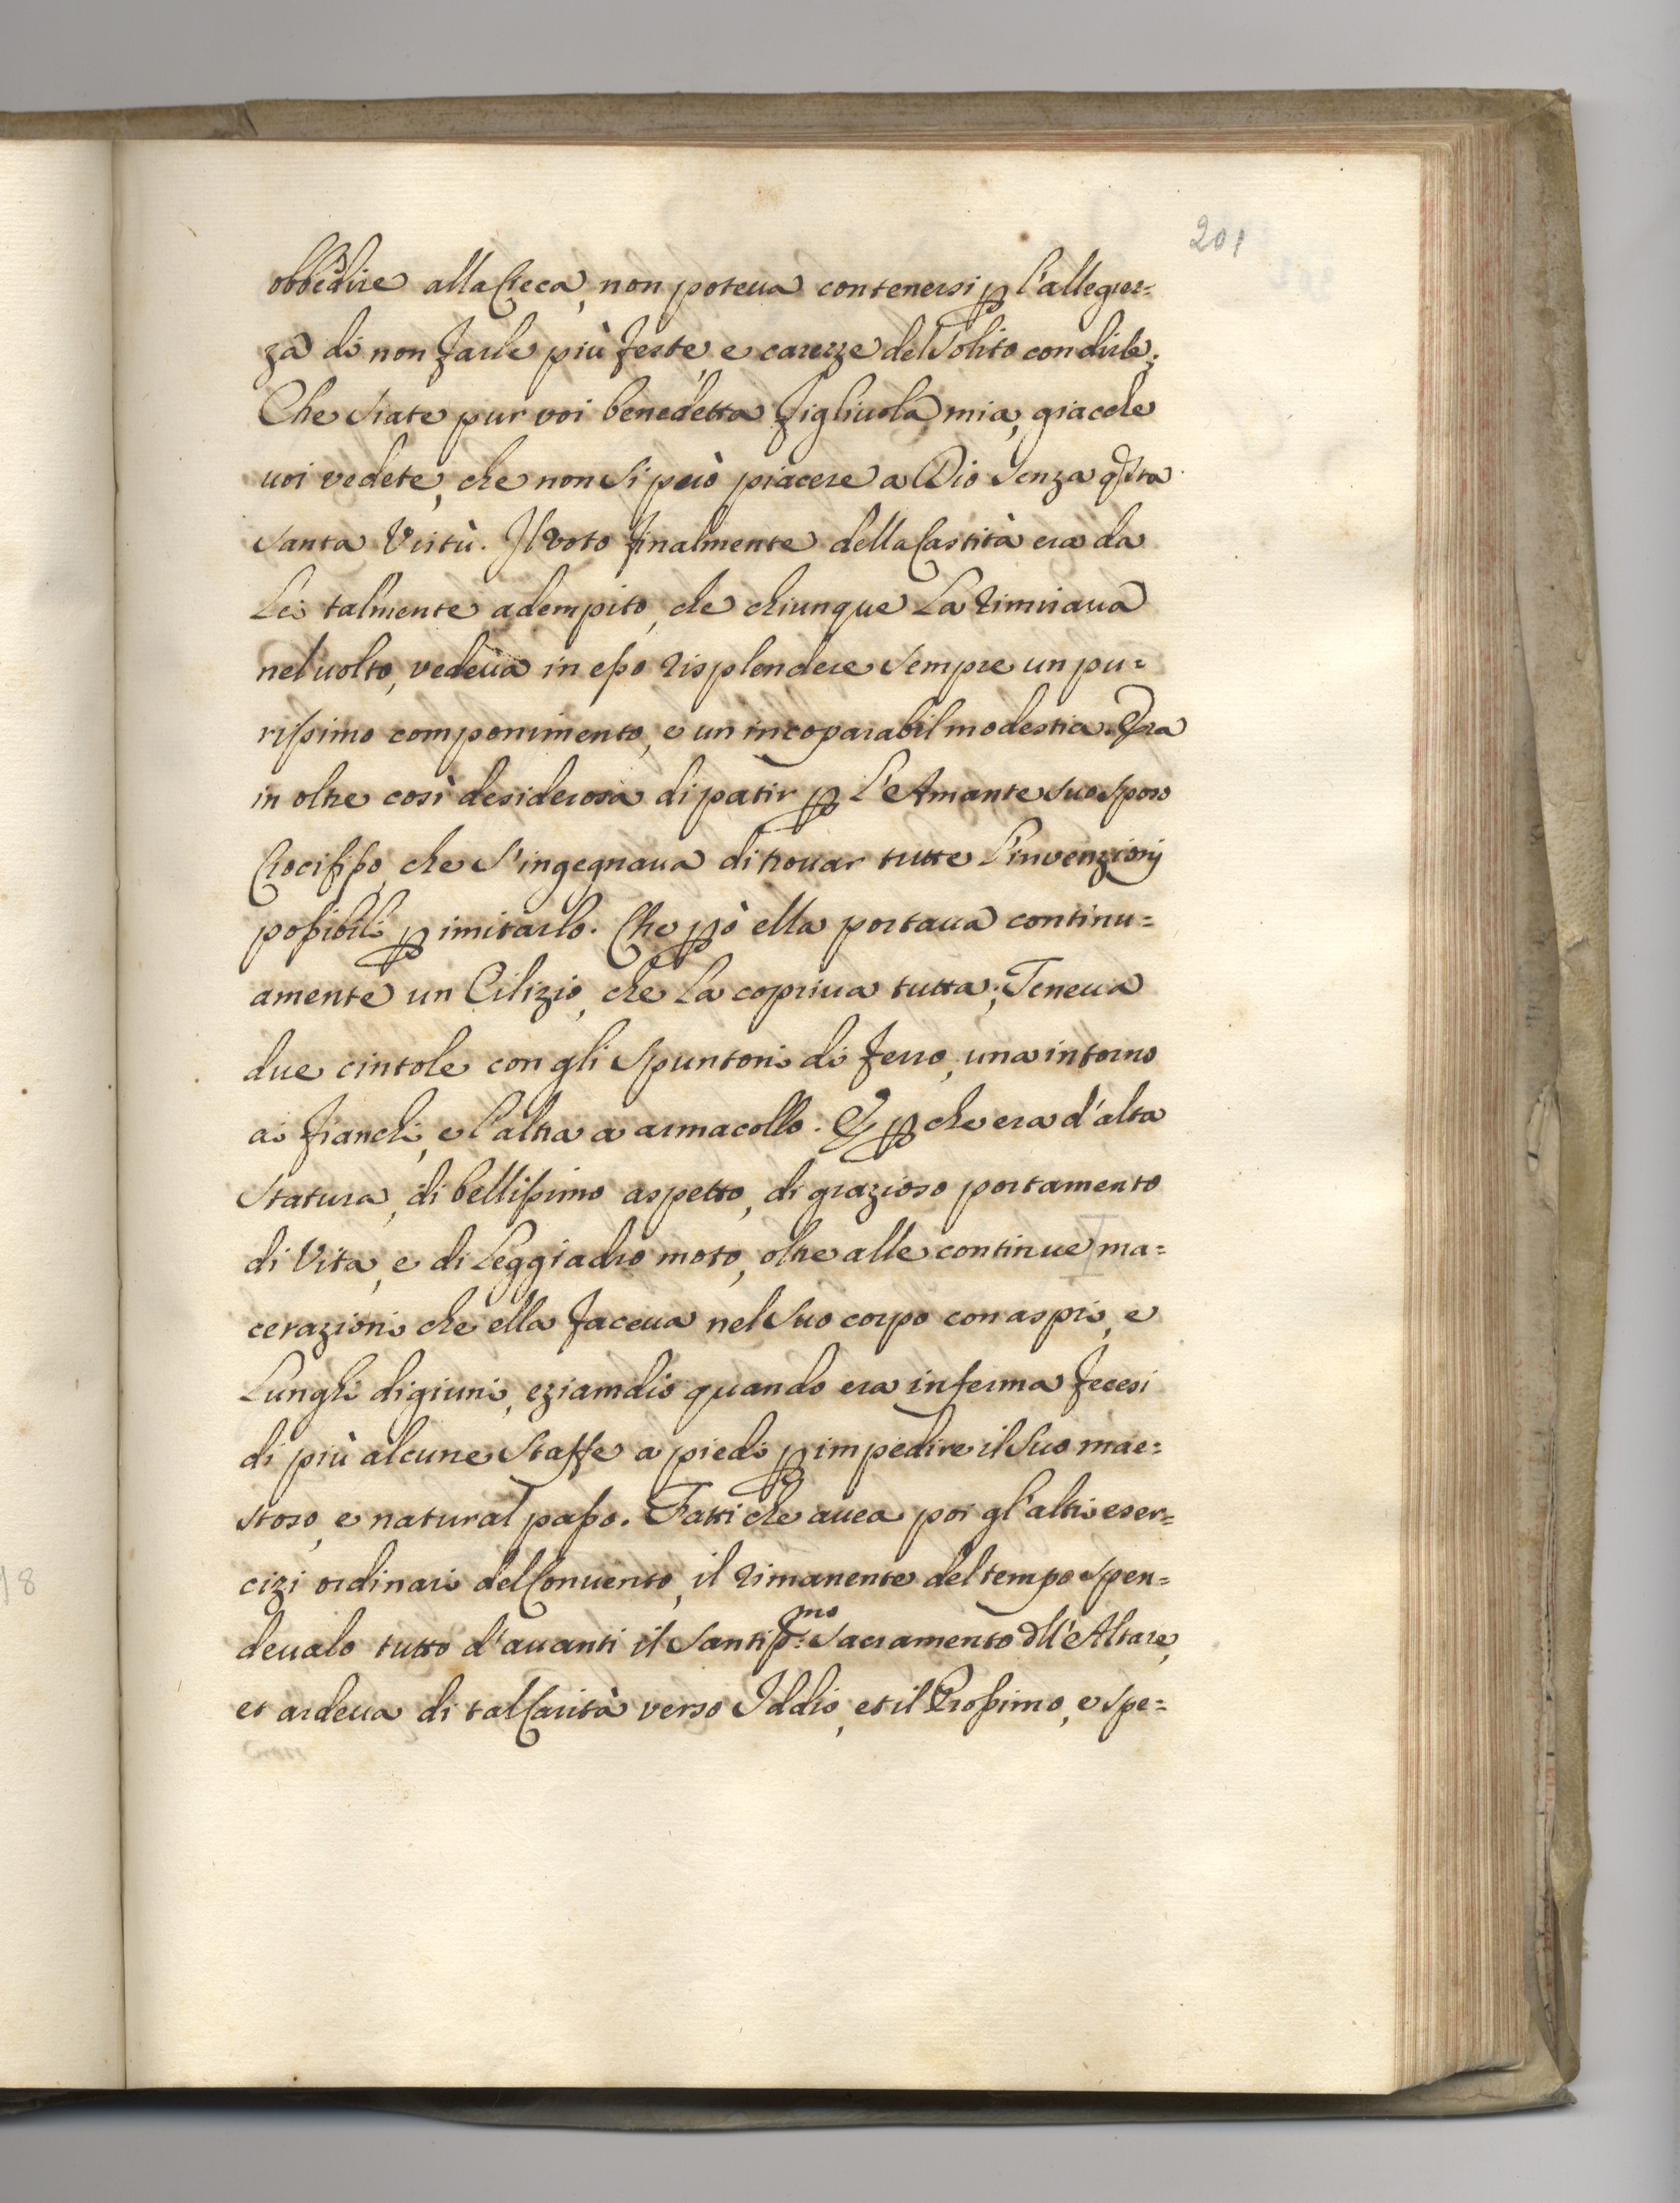 201
obbedire alla Cieca, non poteua contenersi p l'allegrez=
za di non farle più feste, e carezze del solito con dirle;
Che siate pur voi benedetta figliuola mia, giache
uoi vedete, che non si può piacere a Dio senza qsta
santa Virtù. Il voto finalmente della Castità era da
Lei talmente adempito, che chiunque La rimiraua
nel uolto, vedeua in esso risplendere sempre un pu=
rissimo componimento, e un incoparabil modestia. Era
in oltre così desiderosa di patir p L'Amante suo sposo
Crocifisso, che s'ingegnaua di trouar tutte l'invenzionj
possibili p imitarlo. Che pò ella portaua continu=
amente un Cilizio, che La copriua tutta; Teneua
due cintole con gli spuntoni di ferro, una intorno
ai fianchi, e l'altra a armacollo. E p che era d'alta
statura, di bellissimo aspetto, di grazioso portamento
di Vita, e di Leggiadro moto, oltre alle continue ma=
cerazioni che ella faceua nel suo corpo con aspri, e
Lunghi digiuni, eziamdio quando era inferma fecesi
di più alcune staffe a piedi p impedire il suo mae=
stoso, e natural passo. Fatti che auea poi gl'altri eser=
cizi ordinari del Conuento, il rimanente del tempo spen=
deualo tutto d'auanti il Santiss:mo Sacramento dll'Altare,
et ardeua di tal Carità verso Iddio, et il Prossimo, e spe=
18